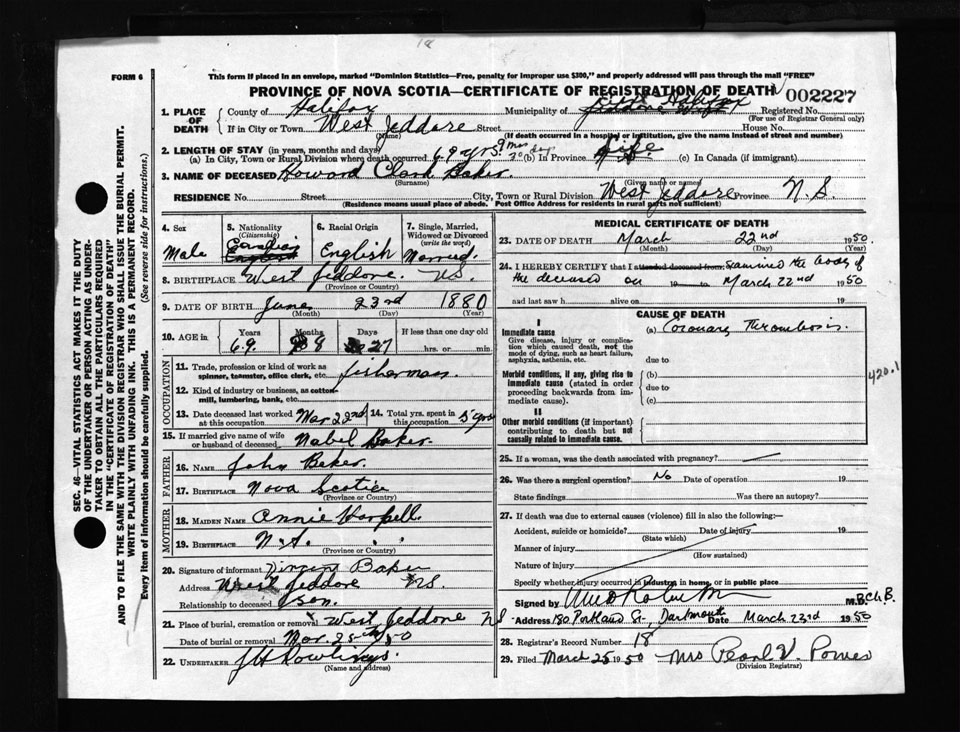 18
FORM 6
This form if placed in an envelope, marked "Dominion Statistics—Free, penalty for improper use $300," and properly addressed will pass through the mail "FREE"
PROVINCE OF NOVA SCOTIA—CERTIFICATE OF REGISTRATION OF DEATH 002227
1. PLACE OF DEATH County of Halifax Municipality of Halifax Registered No.
(For use of Registrar General only)
If in City or Town West Jeddore Street House No.
(Name) (If death occurred in a hospital or institution, give the name instead of street and number)
2. LENGTH OF STAY (in years, months and days)
(a) In City, Town or Rural Division where death occurred 69 yrs. 9 mos (b) In Province Life (c) In Canada (if immigrant)
3. NAME OF DECEASED Howard Clark Baker
(Surname) (Given name or names)
RESIDENCE No. Street City, Town or Rural Division West Jeddore Province N.S
(Residence means usual place of abode. Post Office Address for residents in rural parts not sufficient)
4. Sex 5. Nationality (Citizenship) 6. Racial Origin 7. Single, Married, Widowed or Divorced (write the word)
Male Canadian English English Married
8. BIRTHPLACE West Jeddore. NS
(Province or Country)
9. DATE OF BIRTH June 23rd 1880
(Month) (Day) (Year)
10. AGE in Years Months Days If less than one day old
69 8 27 hrs. or min.
OCCUPATION
11. Trade, profession or kind of work as spinner, teamster, office clerk, etc. fisherman
12. Kind of industry or business, as cotton mill, lumbering, bank, etc.
13. Date deceased last worked at this occupation Mar 22nd 14. Total yrs. spent in this occupation
15. If married give name of wife or husband of deceased Mabel Baker.
FATHER
16. NAME John Baker.
17. BIRTHPLACE Nova Scotia
(Province or Country)
MOTHER
18. MAIDEN NAME Annie Harpell
19. BIRTHPLACE N.S.
(Province or Country)
20. Signature of informant Vincent Baker
Address West Jeddore NS
Relationship to deceased son.
21. Place of burial, cremation or removal West Jeddore NS
Date of burial or removal Mar. 25th/50
22. UNDERTAKER JH Rowlings
(Name and address)
MEDICAL CERTIFICATE OF DEATH
23. DATE OF DEATH March 22nd 1950.
(Month) (Day) (Year)
24. I HEREBY CERTIFY that I attended deceased from examined the body of
the deceased on 19 to March 22nd 1950
and last saw h alive on 19
CAUSE OF DEATH
I
Immediate cause (a) Coronary Thrombosis.
Give disease, injury or complication which caused death, not the mode of dying, such as heart failure, asphyxia, asthenia, etc.
due to
Morbid conditions, if any, giving rise to immediate cause (stated in order proceeding backwards from immediate cause).
(b)
due to
(c)
420.1
II
Other morbid conditions (if important) contributing to death but not causally related to immediate cause.
25. If a woman, was the death associated with pregnancy?
26. Was there a surgical operation? No Date of operation 19
State findings Was there an autopsy?
27. If death was due to external causes (violence) fill in also the following:—
Accident, suicide or homicide? Date of injury 19
(State which)
Manner of injury
(How sustained)
Nature of injury
Specify whether injury occurred in industry, in home, or in public place
Signed by M.B. B.Ch.B.
Address 180 Portland St., Dartmouth Date March 23rd 1950
28. Registrar's Record Number 18
29. Filed March 25 1950 Mrs Pearl V. Power
(Division Registrar)
SEC. 46—VITAL STATISTICS ACT MAKES IT THE DUTY
OF THE UNDERTAKER OR PERSON ACTING AS UNDERTAKER
TO OBTAIN ALL THE PARTICULARS REQUIRED
IN THE "CERTIFICATE OF REGISTRATION OF DEATH"
AND TO FILE THE SAME WITH THE DIVISION REGISTRAR WHO SHALL ISSUE THE BURIAL PERMIT.
WRITE PLAINLY WITH UNFADING INK. THIS IS A PERMANENT RECORD.
Every item of information should be carefully supplied. (See reverse side for instructions.)